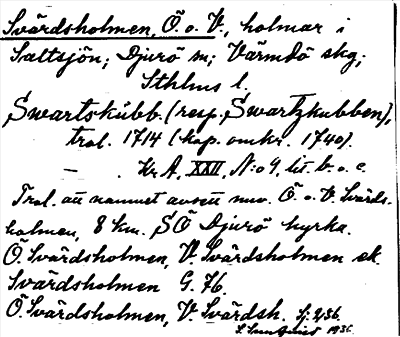 Svärdsholmen, Ö. o. V., holmar i
Saltsjön; Djurö sn; Värmdö skg;
Sthlms l.
Swartskubb. (resp. Swartzkubben),
trol. 1714 (kop. omkr. 1740).
— . Kr. A, XXII, N:o 9, lit. b. o. c.
Trol. att namnet avsett nuv. Ö. o. V. Svärds-
holmen, 8 km. SÖ Djurö kyrka.
Ö. Svärdsholmen, V. Svärdsholmen ek.
Svärdsholmen G. 76.
Ö. Svärdsholmen, V. Svärdsh. Sj. 2/36.
1936.